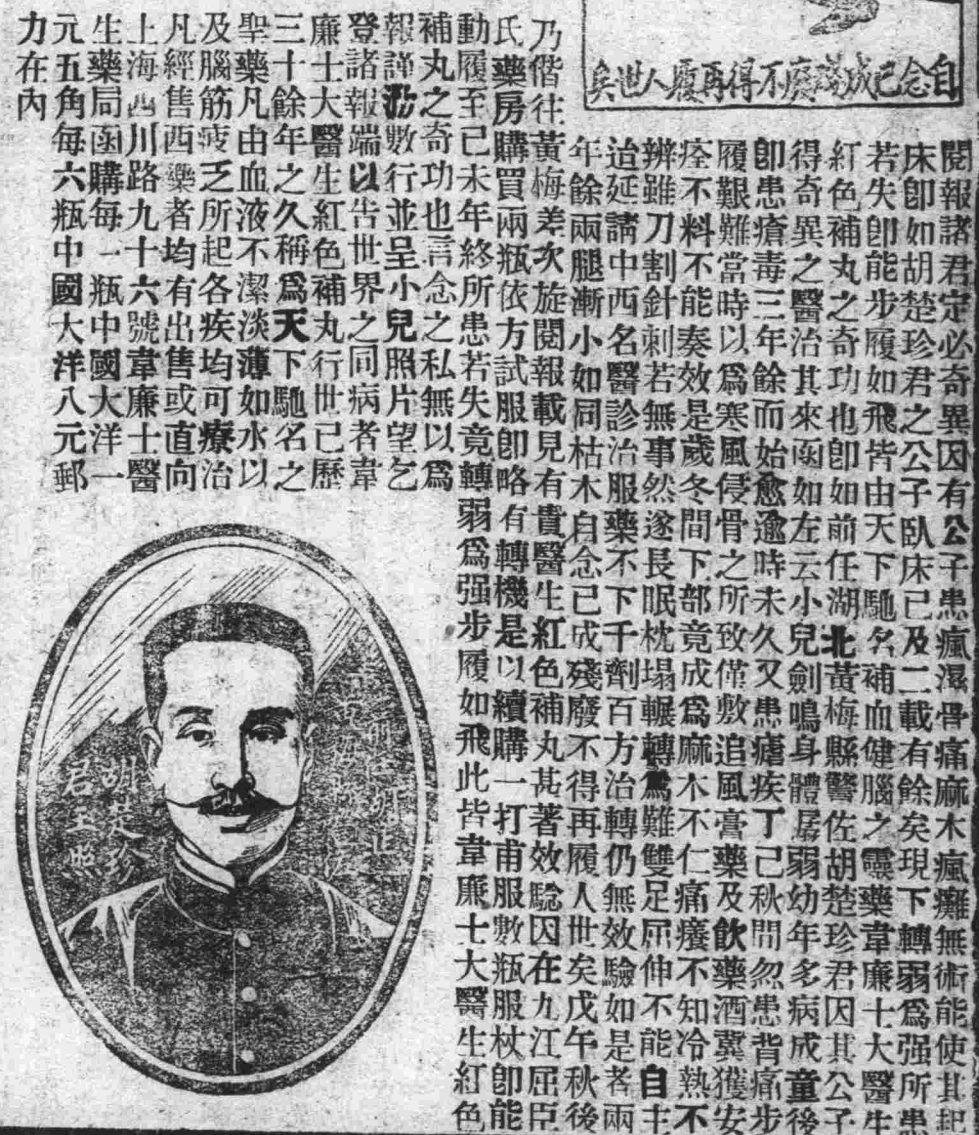 自念已成殘廢不得再履人世矣
閱報諸君定必奇異因有公子患瘋濕骨痛麻木瘋癱無術能使其起
床卽如胡楚珍君之公子臥床已及二載有餘矣現下轉弱爲强所患
若失卽能步履如飛皆由天下馳名補血健腦之靈藥韋廉士大醫生
紅色補丸之奇功也卽如前任湖北黃梅縣警佐胡楚珍君因其公子
得奇異之醫治其來函如左云小兒劍鳴身體孱弱幼年多病成童後
卽患瘡毒三年餘而始愈逾時未久又患瘧疾丁已秋間忽患背痛步
履艱難當時以爲寒風侵骨之所致僅敷追風膏藥及飲藥酒冀獲安
痊不料不能奏效是歲冬間下部竟成爲麻木不仁痛癢不知冷熱不
辨雖刀割針刺若無事然遂長眠枕塌輾轉爲難雙足屈伸不能自主
迨延請中西名醫診治服藥不下千劑百方治轉仍無效驗如是者兩
年餘兩腿漸小如同枯木自念已成殘廢不得再履人世矣戊午秋後
乃偕往黃梅差次旋閱報載見有貴醫生紅色補丸甚著效騐因在九江屈臣
氏藥房購買兩瓶依方試服卽略有轉機是以續購一打甫服數瓶服杖卽能
動履至己未年終所患若失竟轉弱爲强步履如飛此皆韋廉士大醫生紅色
補丸之奇功也言念之私無以爲
報謹泐數行並呈小兒照片望乞
登諸報端以告世界之同病者韋
廉士大醫生紅色補丸行世已歷
三十餘年之久稱爲天下馳名之
聖藥凡由血液不潔淡薄如水以
及腦筋疲乏所起各疾均可療治
凡經售西藥者均有出售或直向
上海四川路九十六號韋廉士醫
生藥局函購每一瓶中國大洋一
元五角每六瓶中國大洋八元郵
力在內
胡楚珍
君玉照